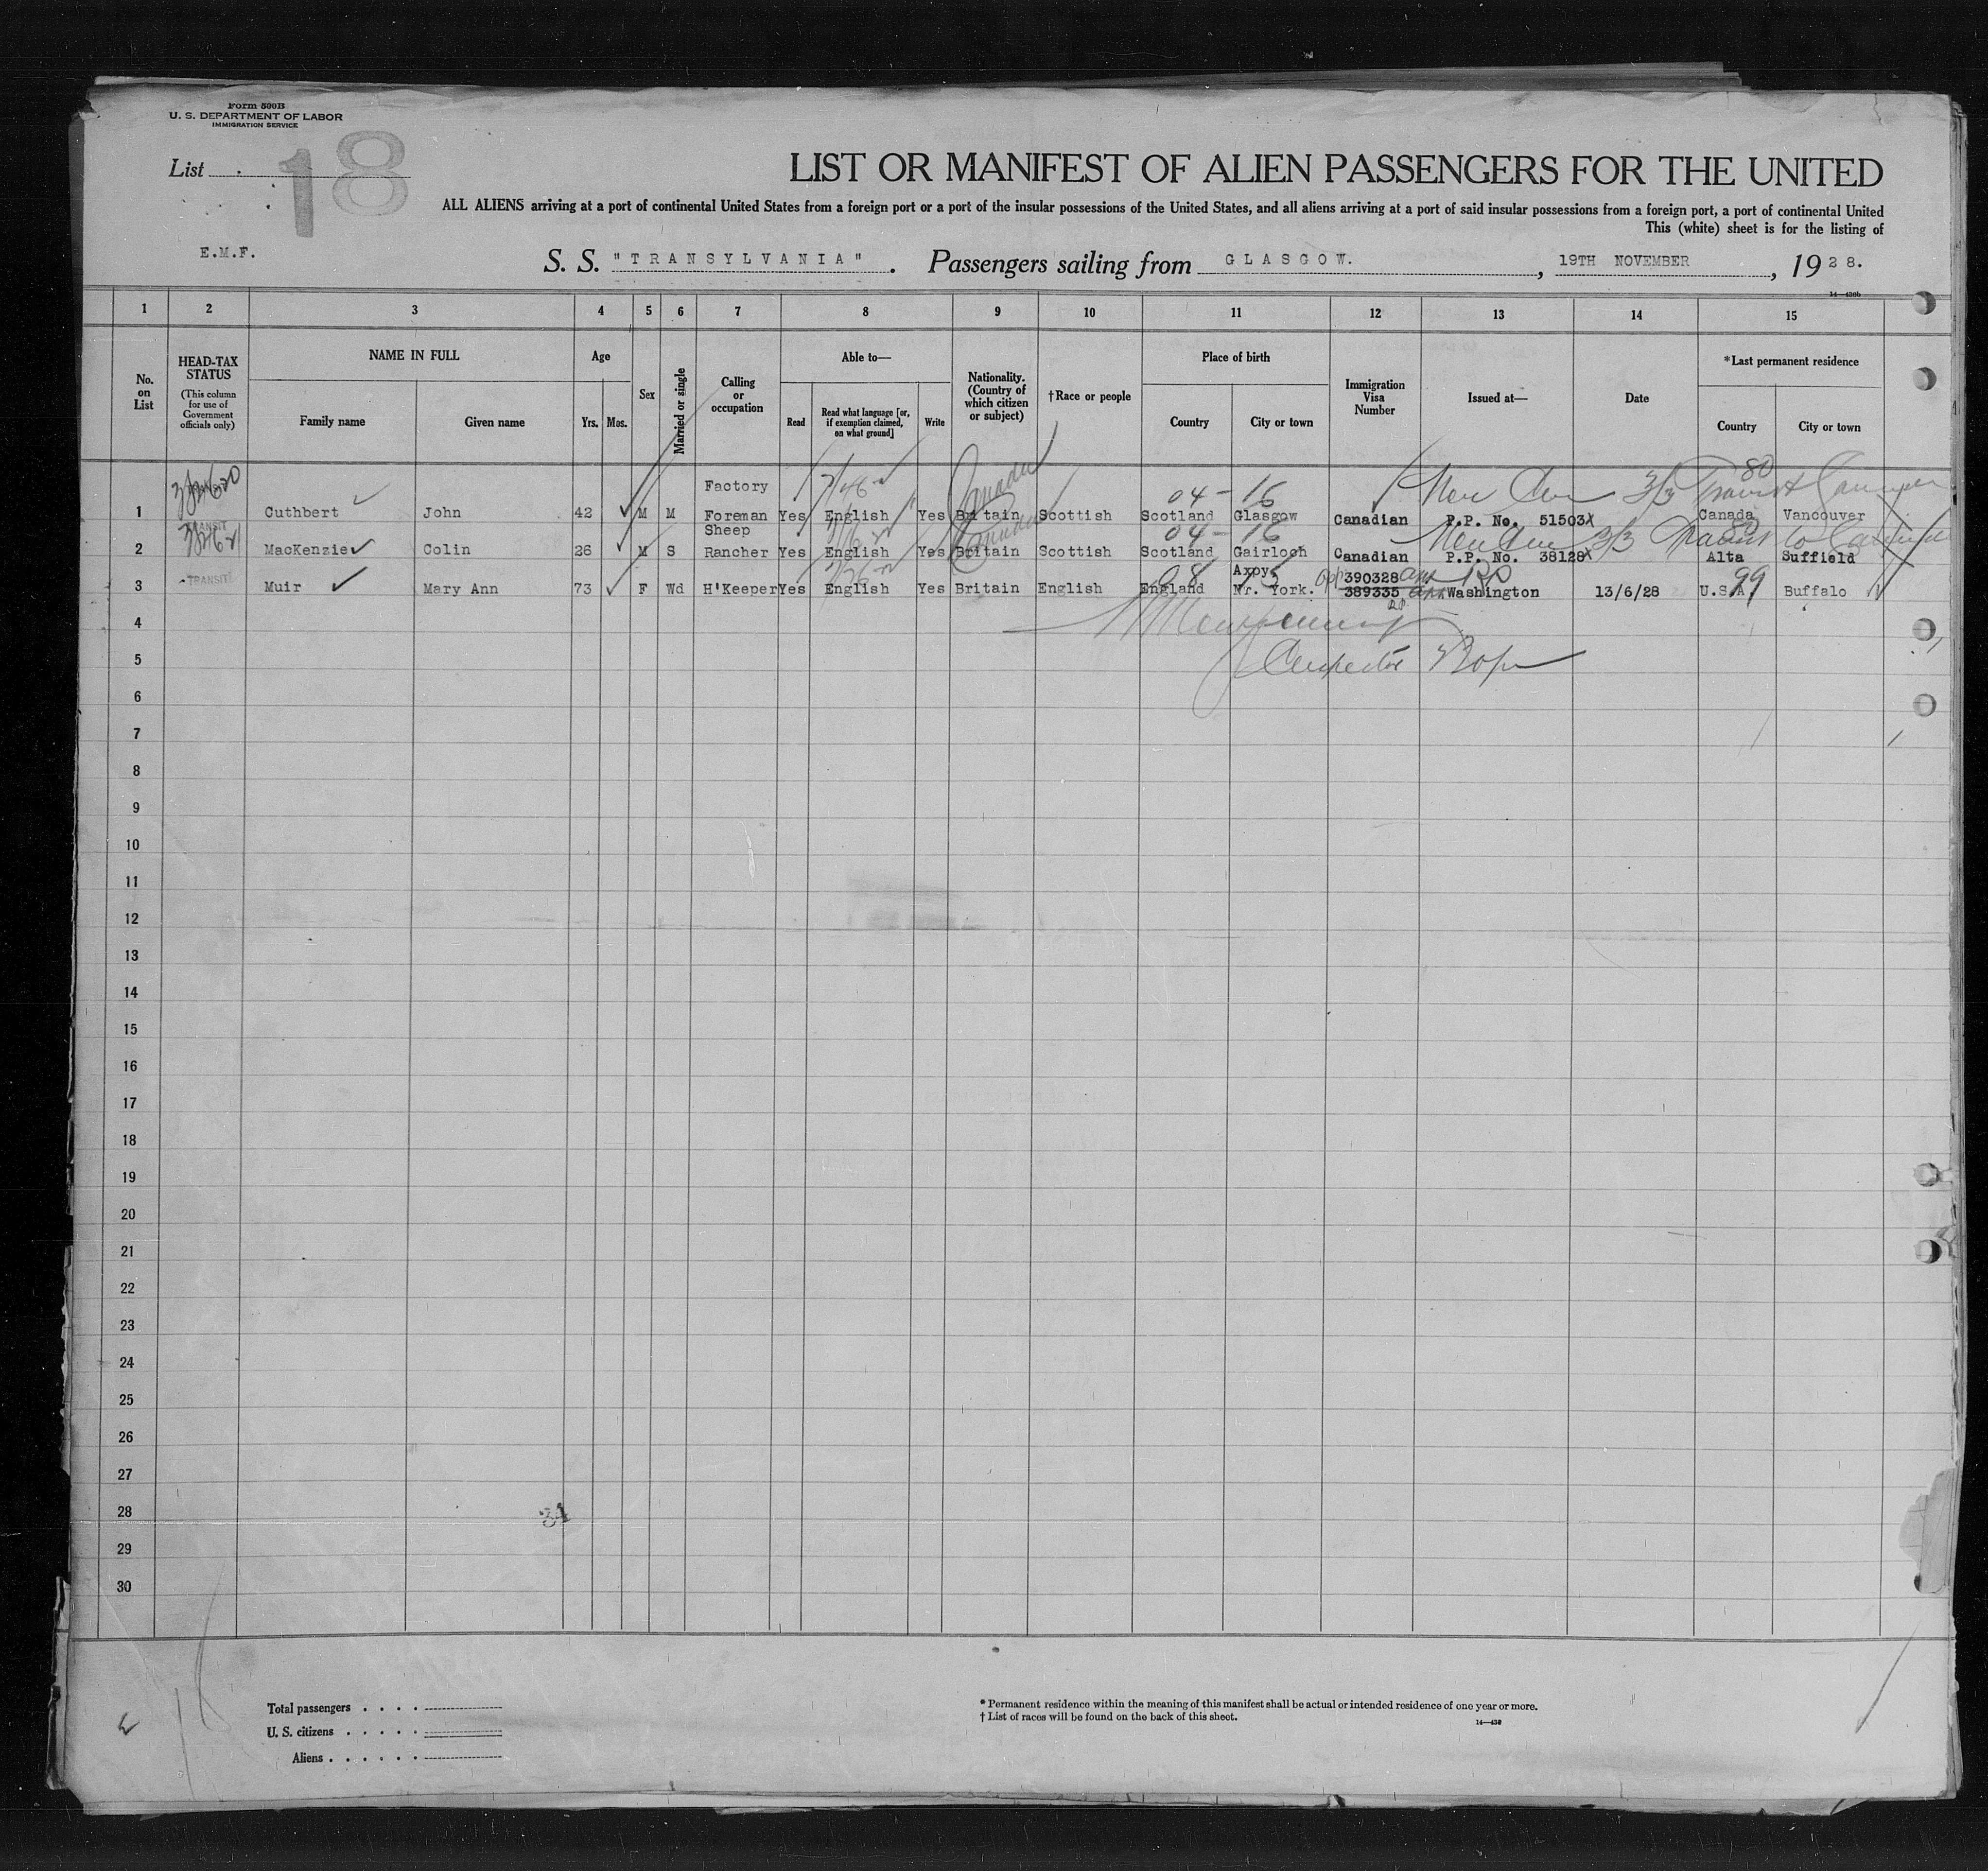 Form 500B
U. S. DEPARTMENT OF LABOR
IMMIGRATION SERVICE
List
18
LIST OR MANIFEST OF ALIEN PASSENGERS FOR THE UNITED
ALL ALIENS arriving at a port of continental United States from a foreign port or a port of the insular possessions of the United States, and all aliens arriving at a port of said insular possessions from a foreign port, a port of continental United
This (white) sheet is for the listing of
E.M.F.
S. S. "TRANSYLVANIA" . Passengers sailing from GLASGOW. , 19TH NOVEMBER , 1928.
14—430b
1 2 3 4 5 6 7 8 9 10 11 12 13 14 15
No. on List
HEAD-TAX STATUS
(This column for use of Government officials only)
NAME IN FULL
Family name
Given name
Age
Yrs.
Mos.
Sex
Married or single
Calling or occupation
Able to—
Read
Read what language [or, if exemption claimed, on what ground]
Write
Nationality. (Country of which citizen or subject)
†Race or people
Place of birth
Country
City or town
Immigration Visa Number
Issued at—
Date
*Last permanent residence
Country
City or town
Canada
04 - 16
3/3 Transit
80
Factory
1 Cuthbert John 42 M M Foreman Yes English Yes Britain Scottish Scotland Glasgow Canadian P.P. No. 51503 Canada Vancouver
TRANSIT
Canada
04 - 16
3/3 Transit to
80
Sheep
2 MacKenzie Colin 26 M S Rancher Yes English Yes Britain Scottish Scotland Gairloch Canadian P.P. No. 38128 Alta Suffield
TRANSIT
08 15
Axpy
390328
99
3 Muir Mary Ann 73 F Wd H'Keeper Yes English Yes Britain English England Nr. York. 389335 Washington 13/6/28 U.S.A. Buffalo
4
5
Inspector
6
7
8
9
10
11
12
13
14
15
16
17
18
19
20
21
22
23
24
25
26
27
28
34
29
30
Total passengers . . . .
U. S. citizens . . . . .
Aliens . . . . . .
* Permanent residence within the meaning of this manifest shall be actual or intended residence of one year or more.
† List of races will be found on the back of this sheet.
14—430